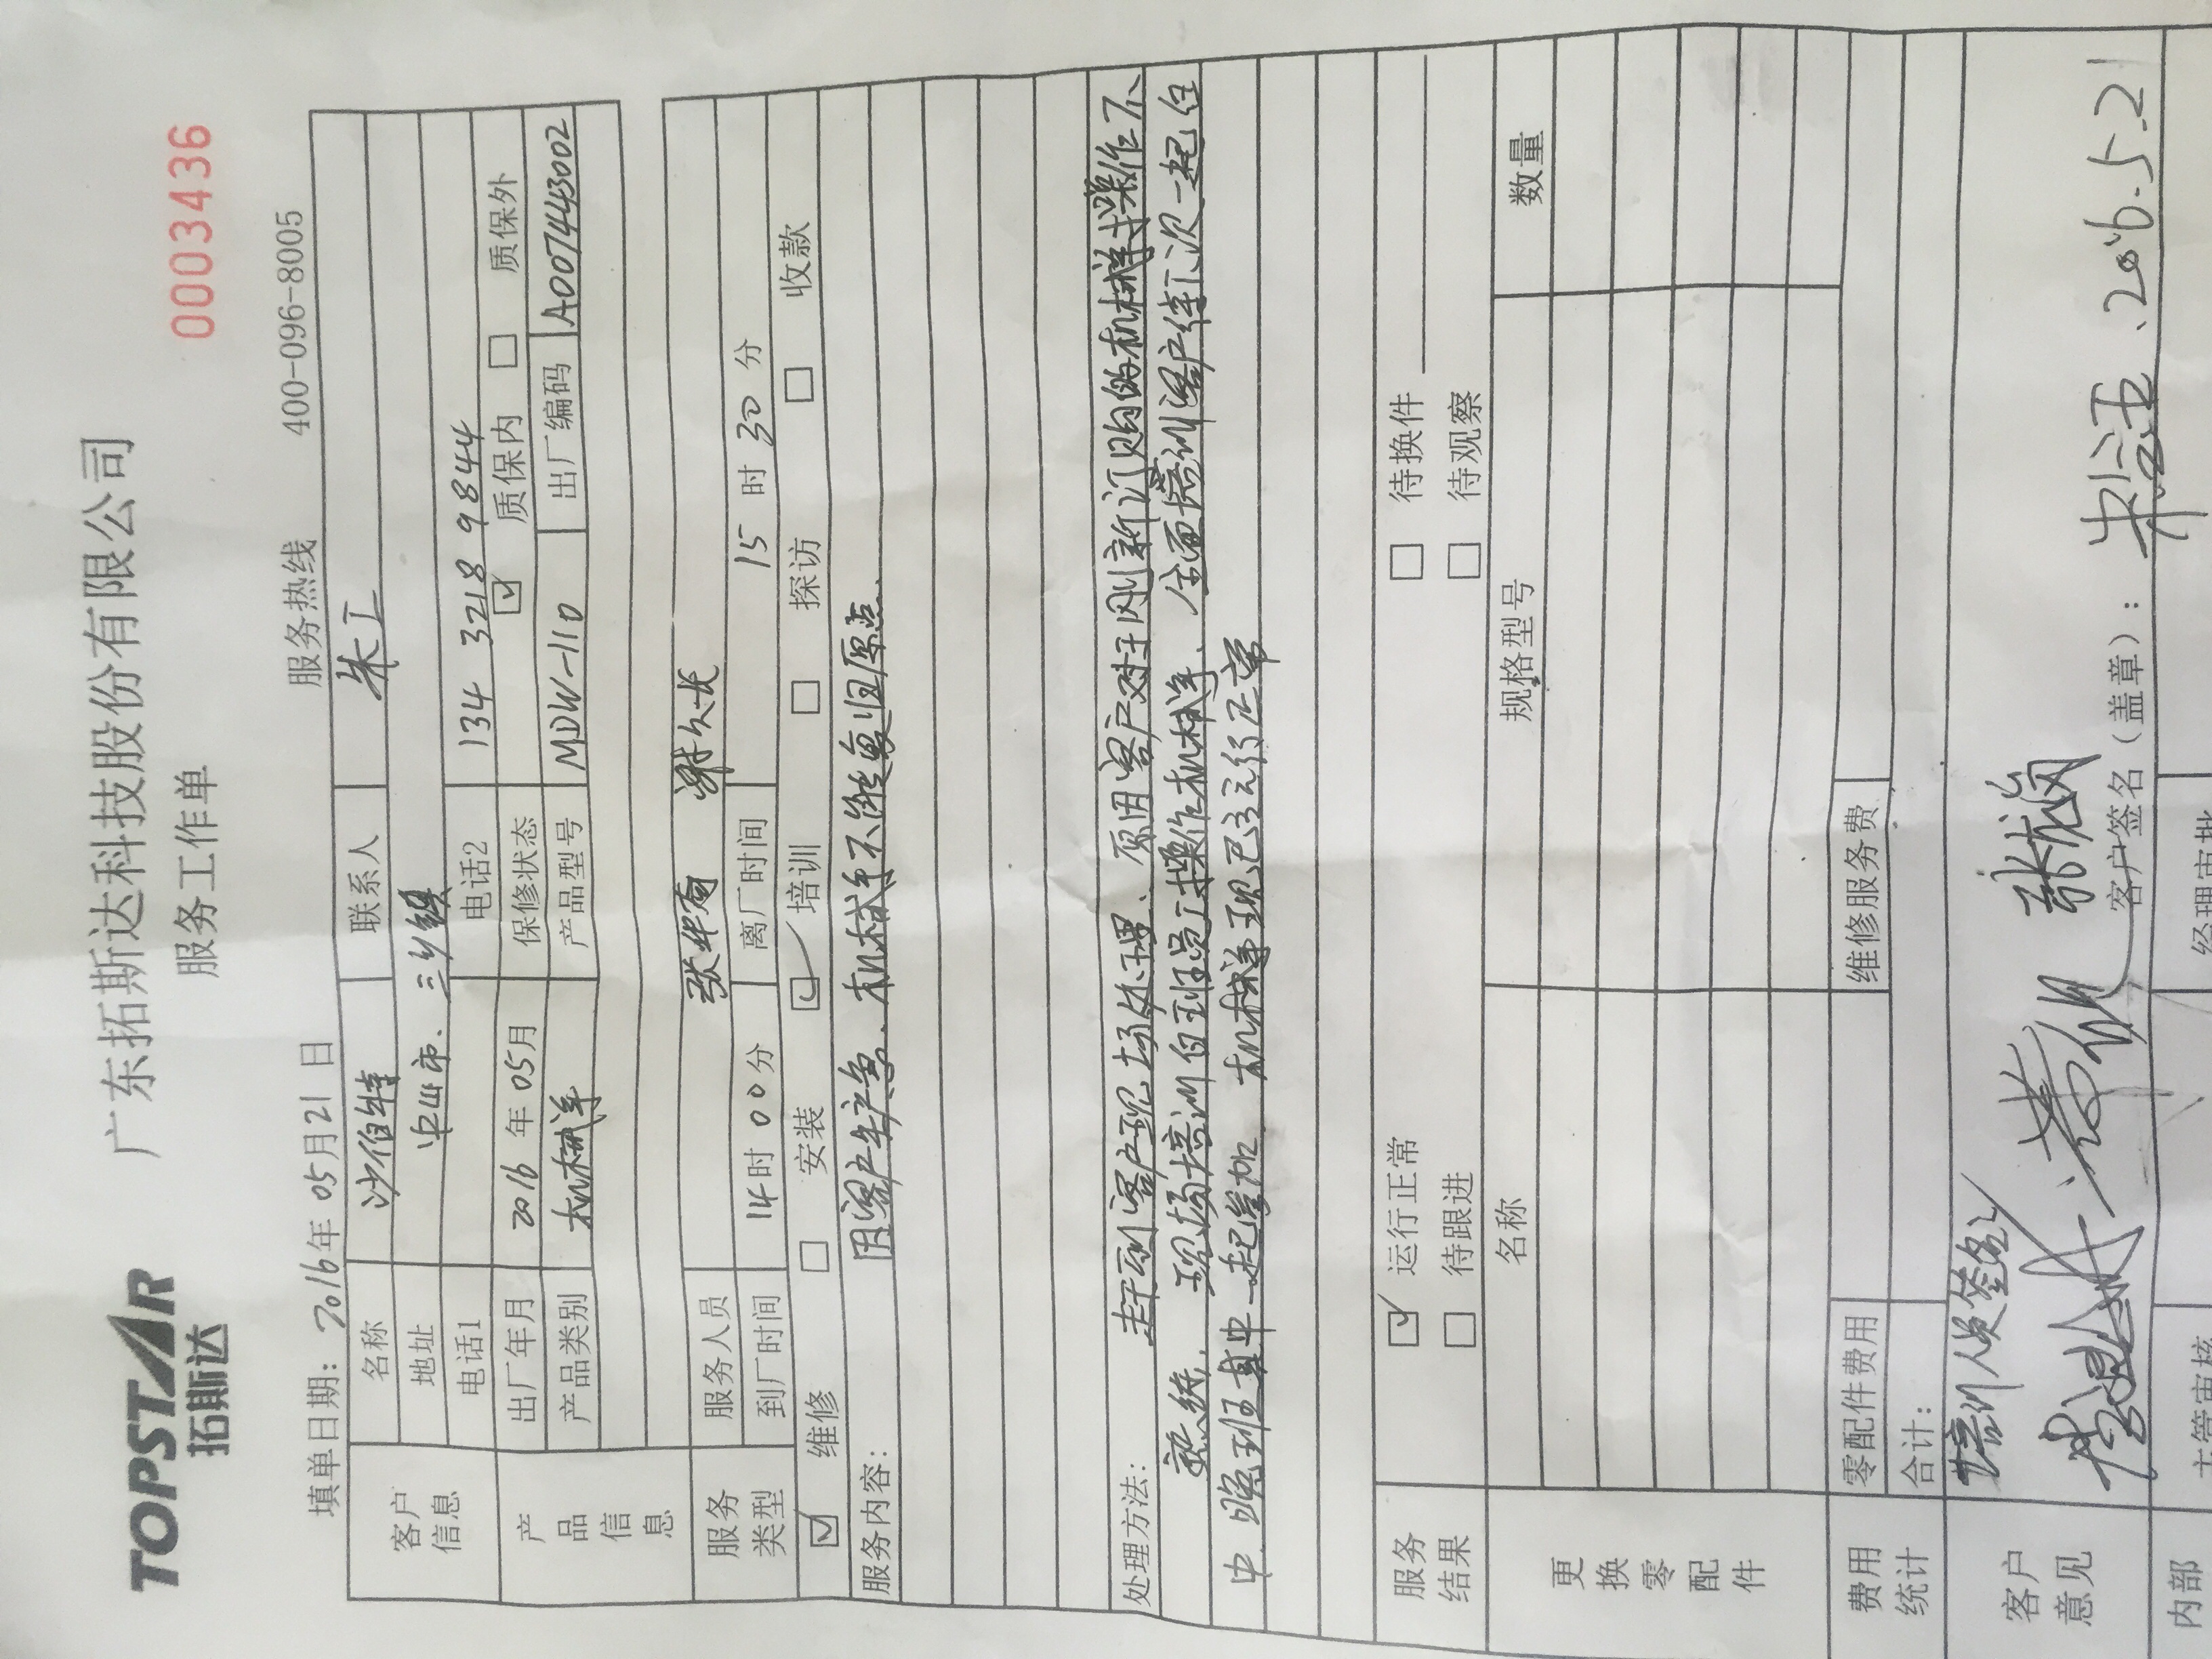 TOPSTAR
拓斯达
广东拓斯达科技股份有限公司
服务工作单
0003436
填单日期: 2016年 05月 21 日
服务热线 400-096-8005
客户信息
名称 沙伯特 联系人 朱工
地址 中山市、三乡镇
电话1 电话2 134 3218 9844
产品信息
出厂年月 2016 年 05月 保修状态 ☑ 质保内 □ 质保外
产品类别 机械手 产品型号 MDW-110 出厂编码 A00744S3002
服务类型
服务人员 张华南 谢久长
到厂时间 14时 00分 离厂时间 15 时 30 分
☑ 维修 □ 安装 ☑ 培训 □ 探访 □ 收款
服务内容: 因客户生产急、机械手不能复归原点、
处理方法: 赶到客户现场处理、原因客户对于刚新订购的机械手操作不
熟练、现场培训白班员工操作机械手、全面培训客户待汇次一起住
中 晚班 一起参加 机械手现已运行正常
服务结果
☑ 运行正常 □ 待换件
□ 待跟进 □ 待观察
更换零配件
名称 规格型号 数量
费用统计
零配件费用 维修服务费
合计:
客户意见
培训人员签名
客户签名(盖章): 2016.5.21
内部 主管审核 经理审批